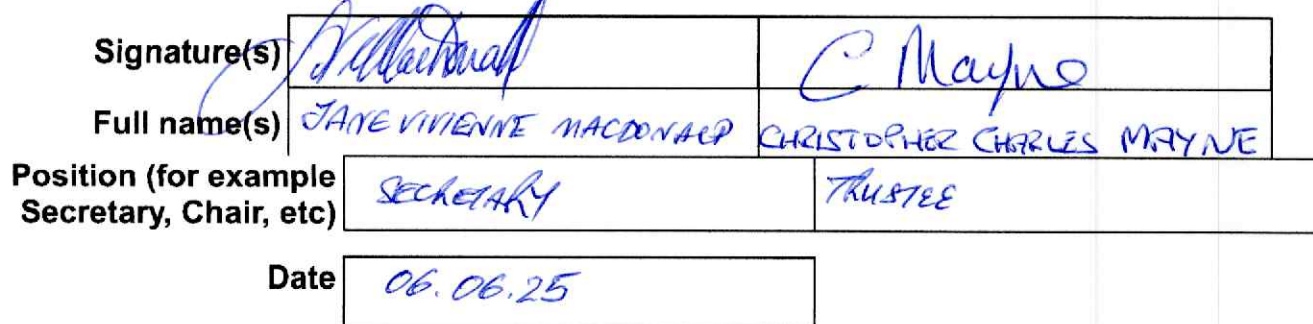 Signature(s) JVMacDonald C Mayne
Full name(s) JANE VIVIENNE MACDONALD CHRISTOPHER CHARLES MAYNE
Position (for example
Secretary, Chair, etc) SECRETARY TRUSTEE
Date 06.06.25